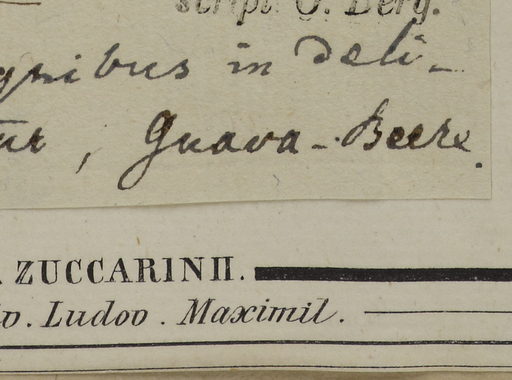 script. O. Berg.
gnibus in deli-
ur, Guava-Beere.
. ZUCCARINII.
iv. Ludov. Maximil.